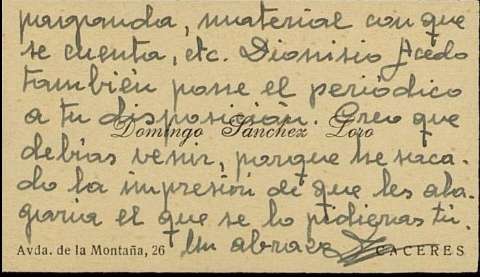 paganda, material con que
se cuenta, etc. Dionisio Acedo
también pone el periódico
a tu disposición. Creo que
Domingo Sánchez Loro
debías venir, porque he saca-
do la impresión de que les ala-
garía el que se lo pidieras tú.
Un abrazo
Avda. de la Montaña, 26 CACERES